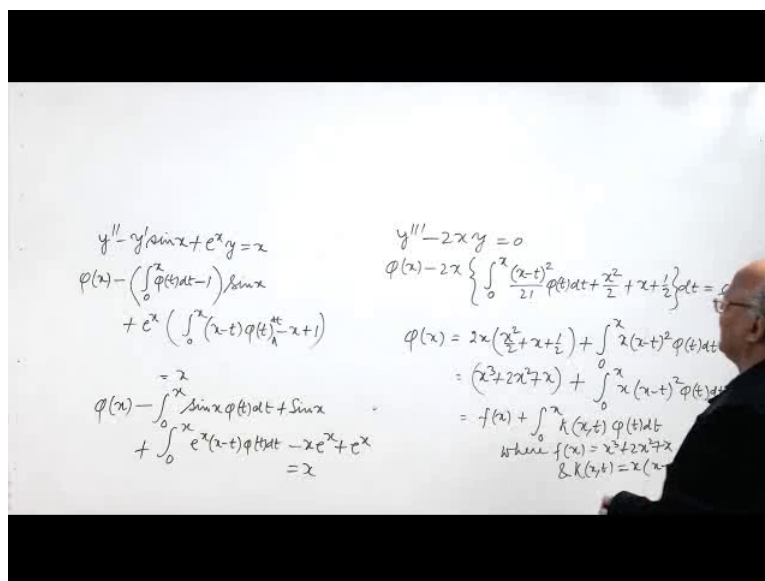 y'' - y' sinx + e^x y = x
φ(x) - (∫_0^x φ(t)dt - 1) sinx
+ e^x (∫_0^x (x-t) φ(t)^dt - x + 1)
= x
φ(x) - ∫_0^x sinx φ(t)dt + Sinx
+ ∫_0^x e^x (x-t) φ(t)dt - xe^x + e^x
= x
y''' - 2xy = 0
φ(x) - 2x { ∫_0^x (x-t)^2/2! φ(t)dt + x^2/2 + x + 1/2 } dt =
φ(x) = 2x (x^2/2 + x + 1/2) + ∫_0^x x(x-t)^2 φ(t)dt
= (x^3 + 2x^2 + x) + ∫_0^x x(x-t)^2 φ(t)dt
= f(x) + ∫_0^x K(x,t) φ(t)dt
where f(x) = x^3 + 2x^2 + x
& K(x,t) = x(x-